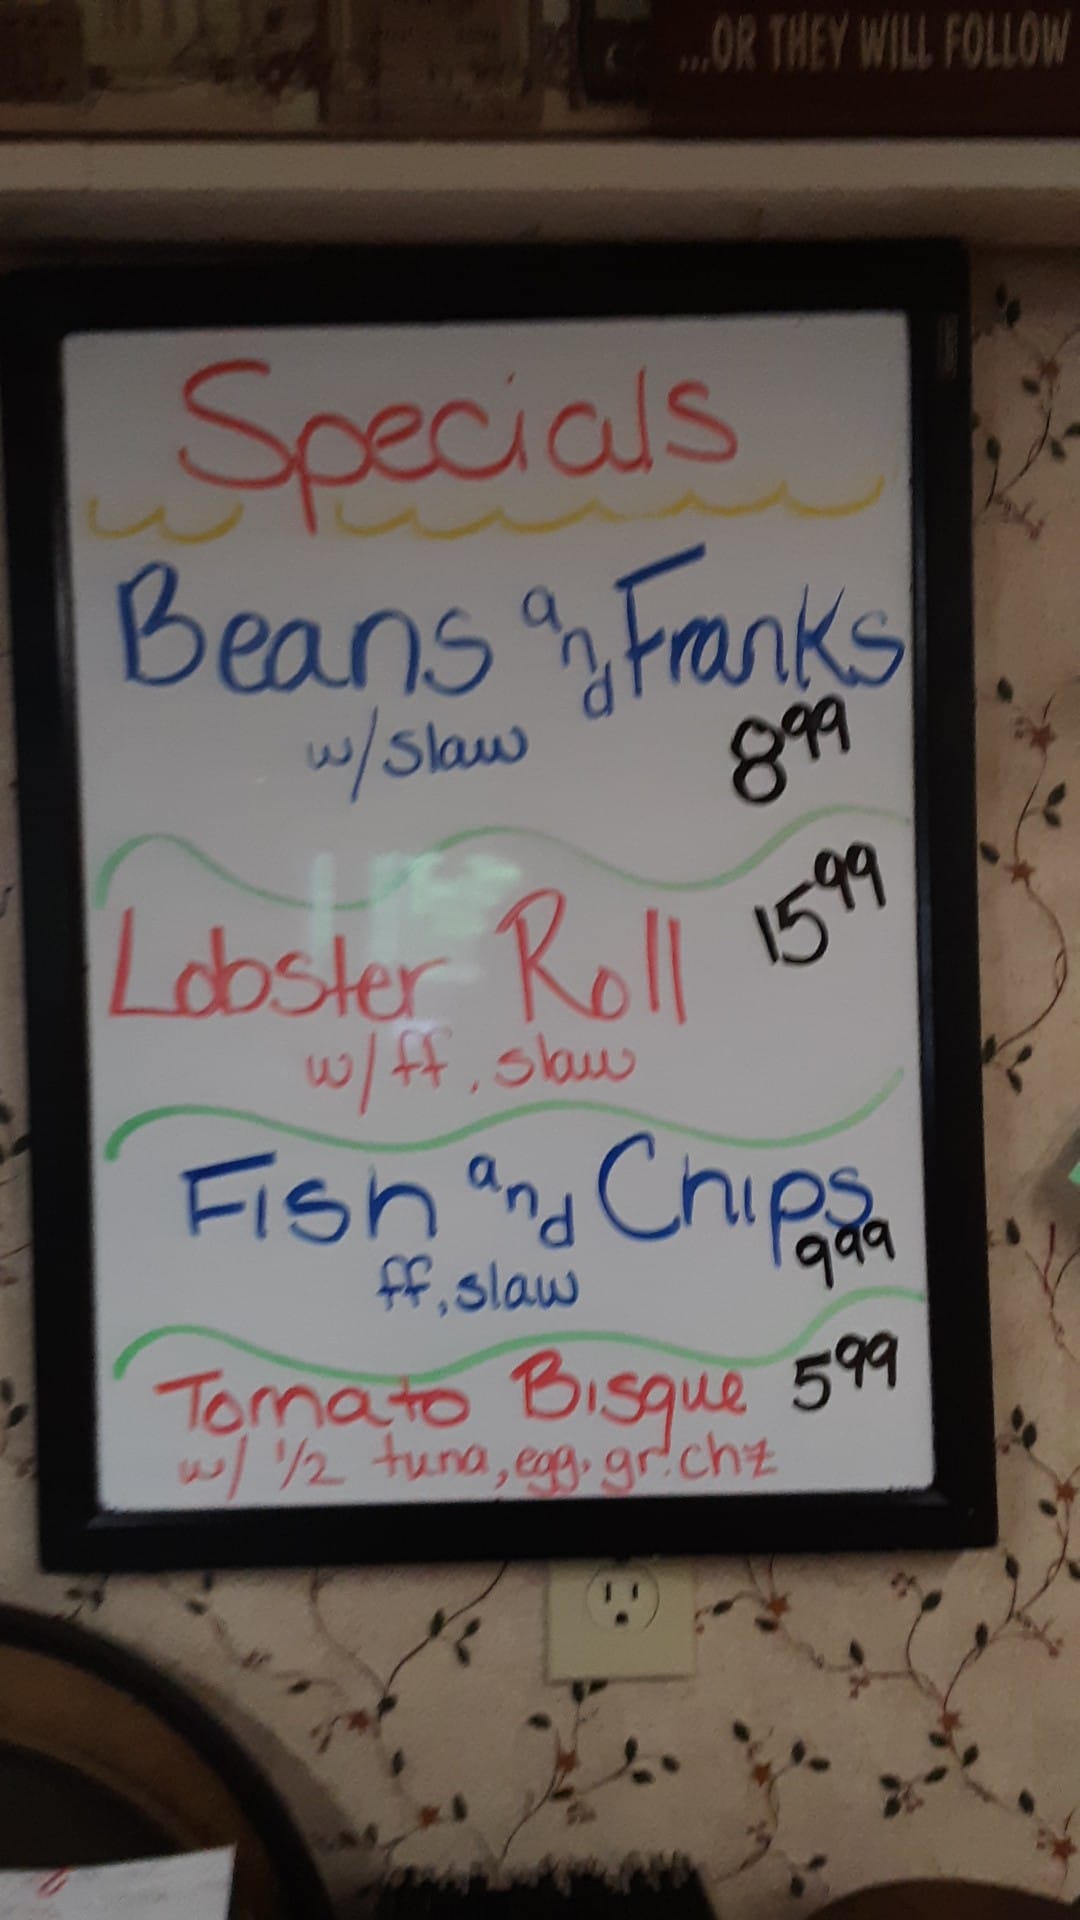 ...OR THEY WILL FOLLOW
Specials
Beans and Franks
w/slaw 8.99
Lobster Roll 15.99
w/ff, slaw
Fish and Chips
9.99
ff, slaw
Tomato Bisque 5.99
w/ 1/2 tuna, egg, gr. chz